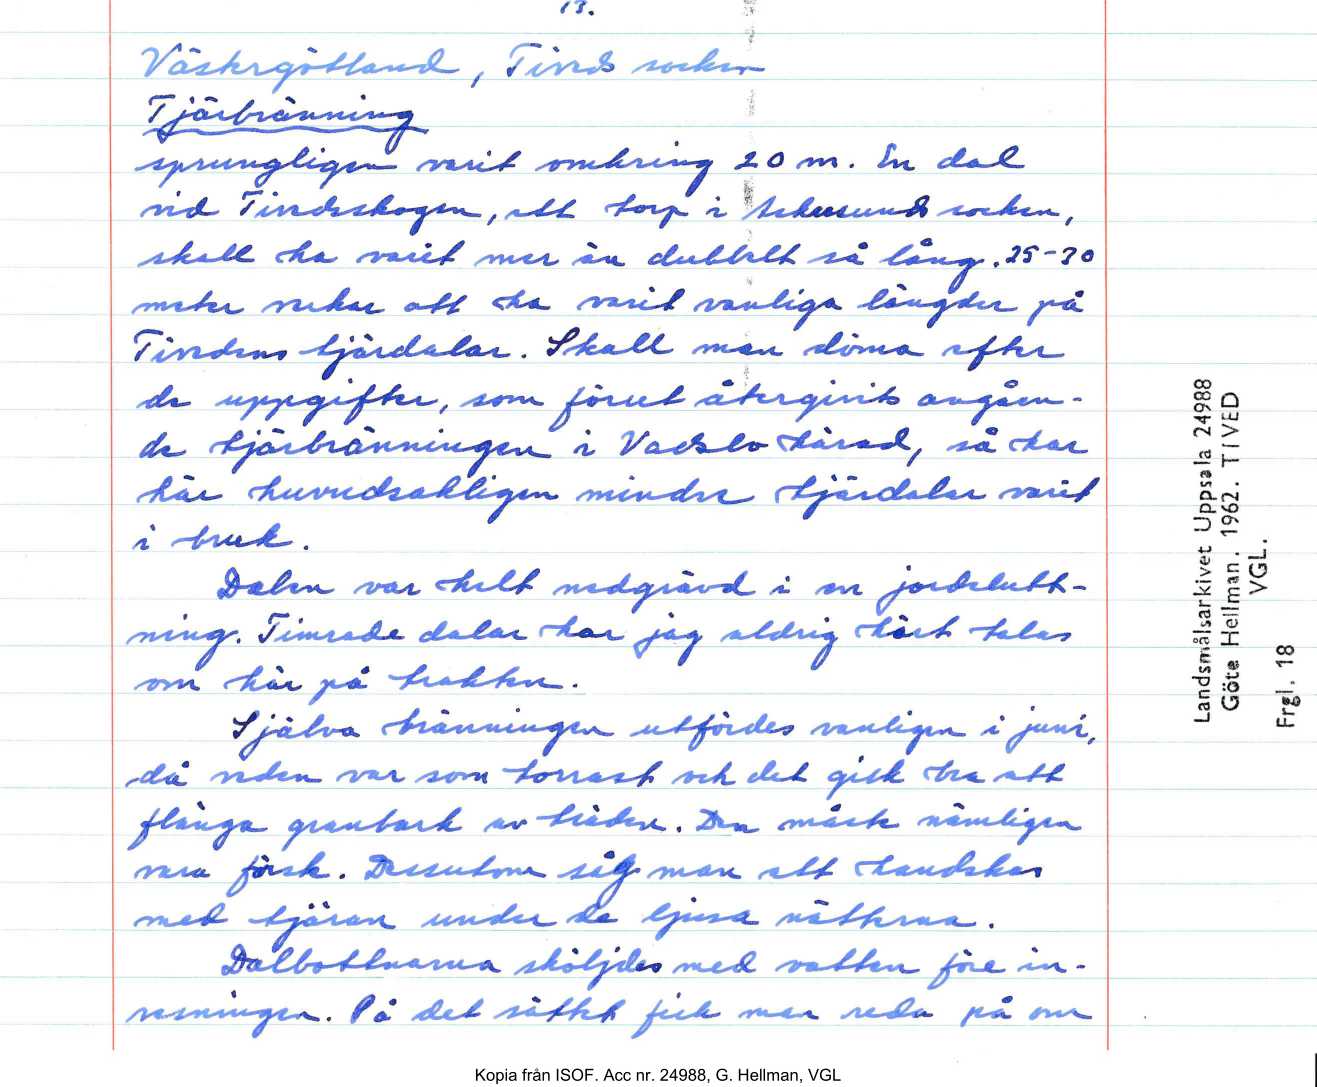 13.
Västergötland, Tiveds socken
Tjärbränning
sprungligen varit omkring 20 m. En dal
vid Tivedsskogen, ett torp i Askersunds socken,
skall ha varit mer än dubbelt så lång. 25-30
meter verkar att ha varit vanliga längder på
Tivedens tjärdalar. Skall man döma efter
de uppgifter, som förut återgivits angåen-
de tjärbränningen i Vadsbo härad, så har
här huvudsakligen mindre tjärdalar varit
i bruk.
Dalen var helt nedgrävd i en jordslutt-
ning. Timrade dalar har jag aldrig hört talas
om här på trakten.
Själva bränningen utfördes vanligen i juni,
då veden var som torrast och det gick bra att
flänga granbark av träden. Den måste nämligen
vara färsk. Dessutom såg man att handskas
med tjäran under de ljusa nätterna.
Dalbottnarna sköljdes med vatten före in-
resningen. På det sättet fick man reda på om
Landsmålsarkivet Uppsala 24988
Göte Hellman. 1962. TIVED
VGL.
Frgl. 18
Kopia från ISOF. Acc nr. 24988, G. Hellman, VGL